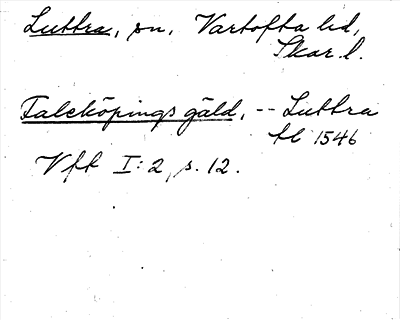 Luttra, sn, Vartofta hd,
Skar. l.
Faleköpings gäld, -- Luttra
kl 1546
Vft I:2, s. 12.